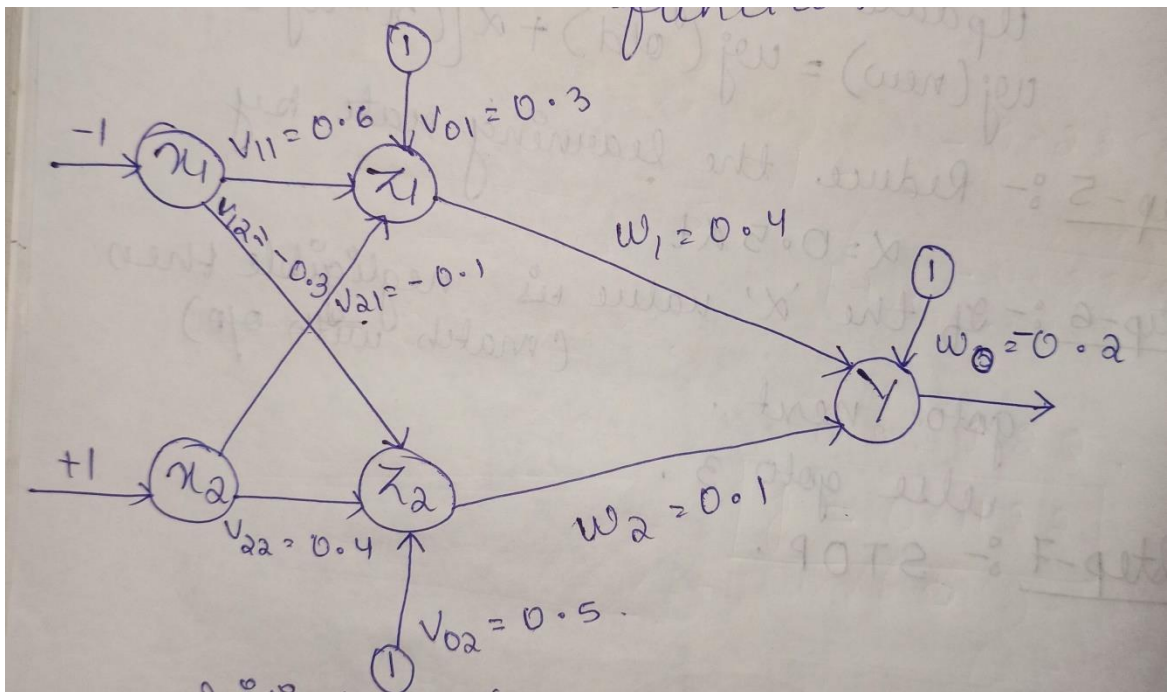 1
-1
x1
V11 = 0.6
V01 = 0.3
Z1
V12 = -0.3
V21 = -0.1
W1 = 0.4
1
W0 = -0.2
Y
+1
x2
V22 = 0.4
Z2
W2 = 0.1
V02 = 0.5.
1